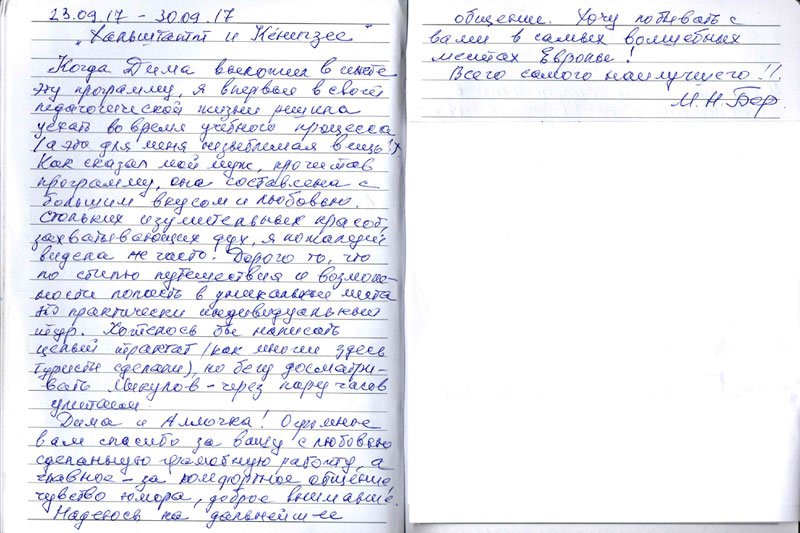 23.09.17 – 30.09.17
"Хальштатт и Кёнигзее"
Когда Дима выложил в инете
эту программу, я впервые в своей
педагогической жизни решила
уехать во время учебного процесса
(а это для меня незыблемая вещь!)
Как сказал мой муж, прочитав
программу, она составлена с
большим вкусом и любовью.
Стольких изумительных красот,
захватывающих дух, я пожалуй
видела не часто. Дорого то, что
по стилю путешествия и возмож-
ности попасть в уникальные места
это практически индивидуальный
тур. Хотелось бы написать
целый трактат (как многие здесь
туристы сделали), но бегу досматри-
вать Микулов – через пару часов
улетаем.
Дима и Аллочка! Огромное
вам спасибо за вашу с любовью
сделанную грамотную работу, а
главное – за комфортное общение,
чувство юмора, доброе внимание.
Надеюсь на дальнейшее
общение. Хочу побывать с
вами в самых волшебных
местах Европы!
Всего самого наилучшего!!
М.Н.Бер